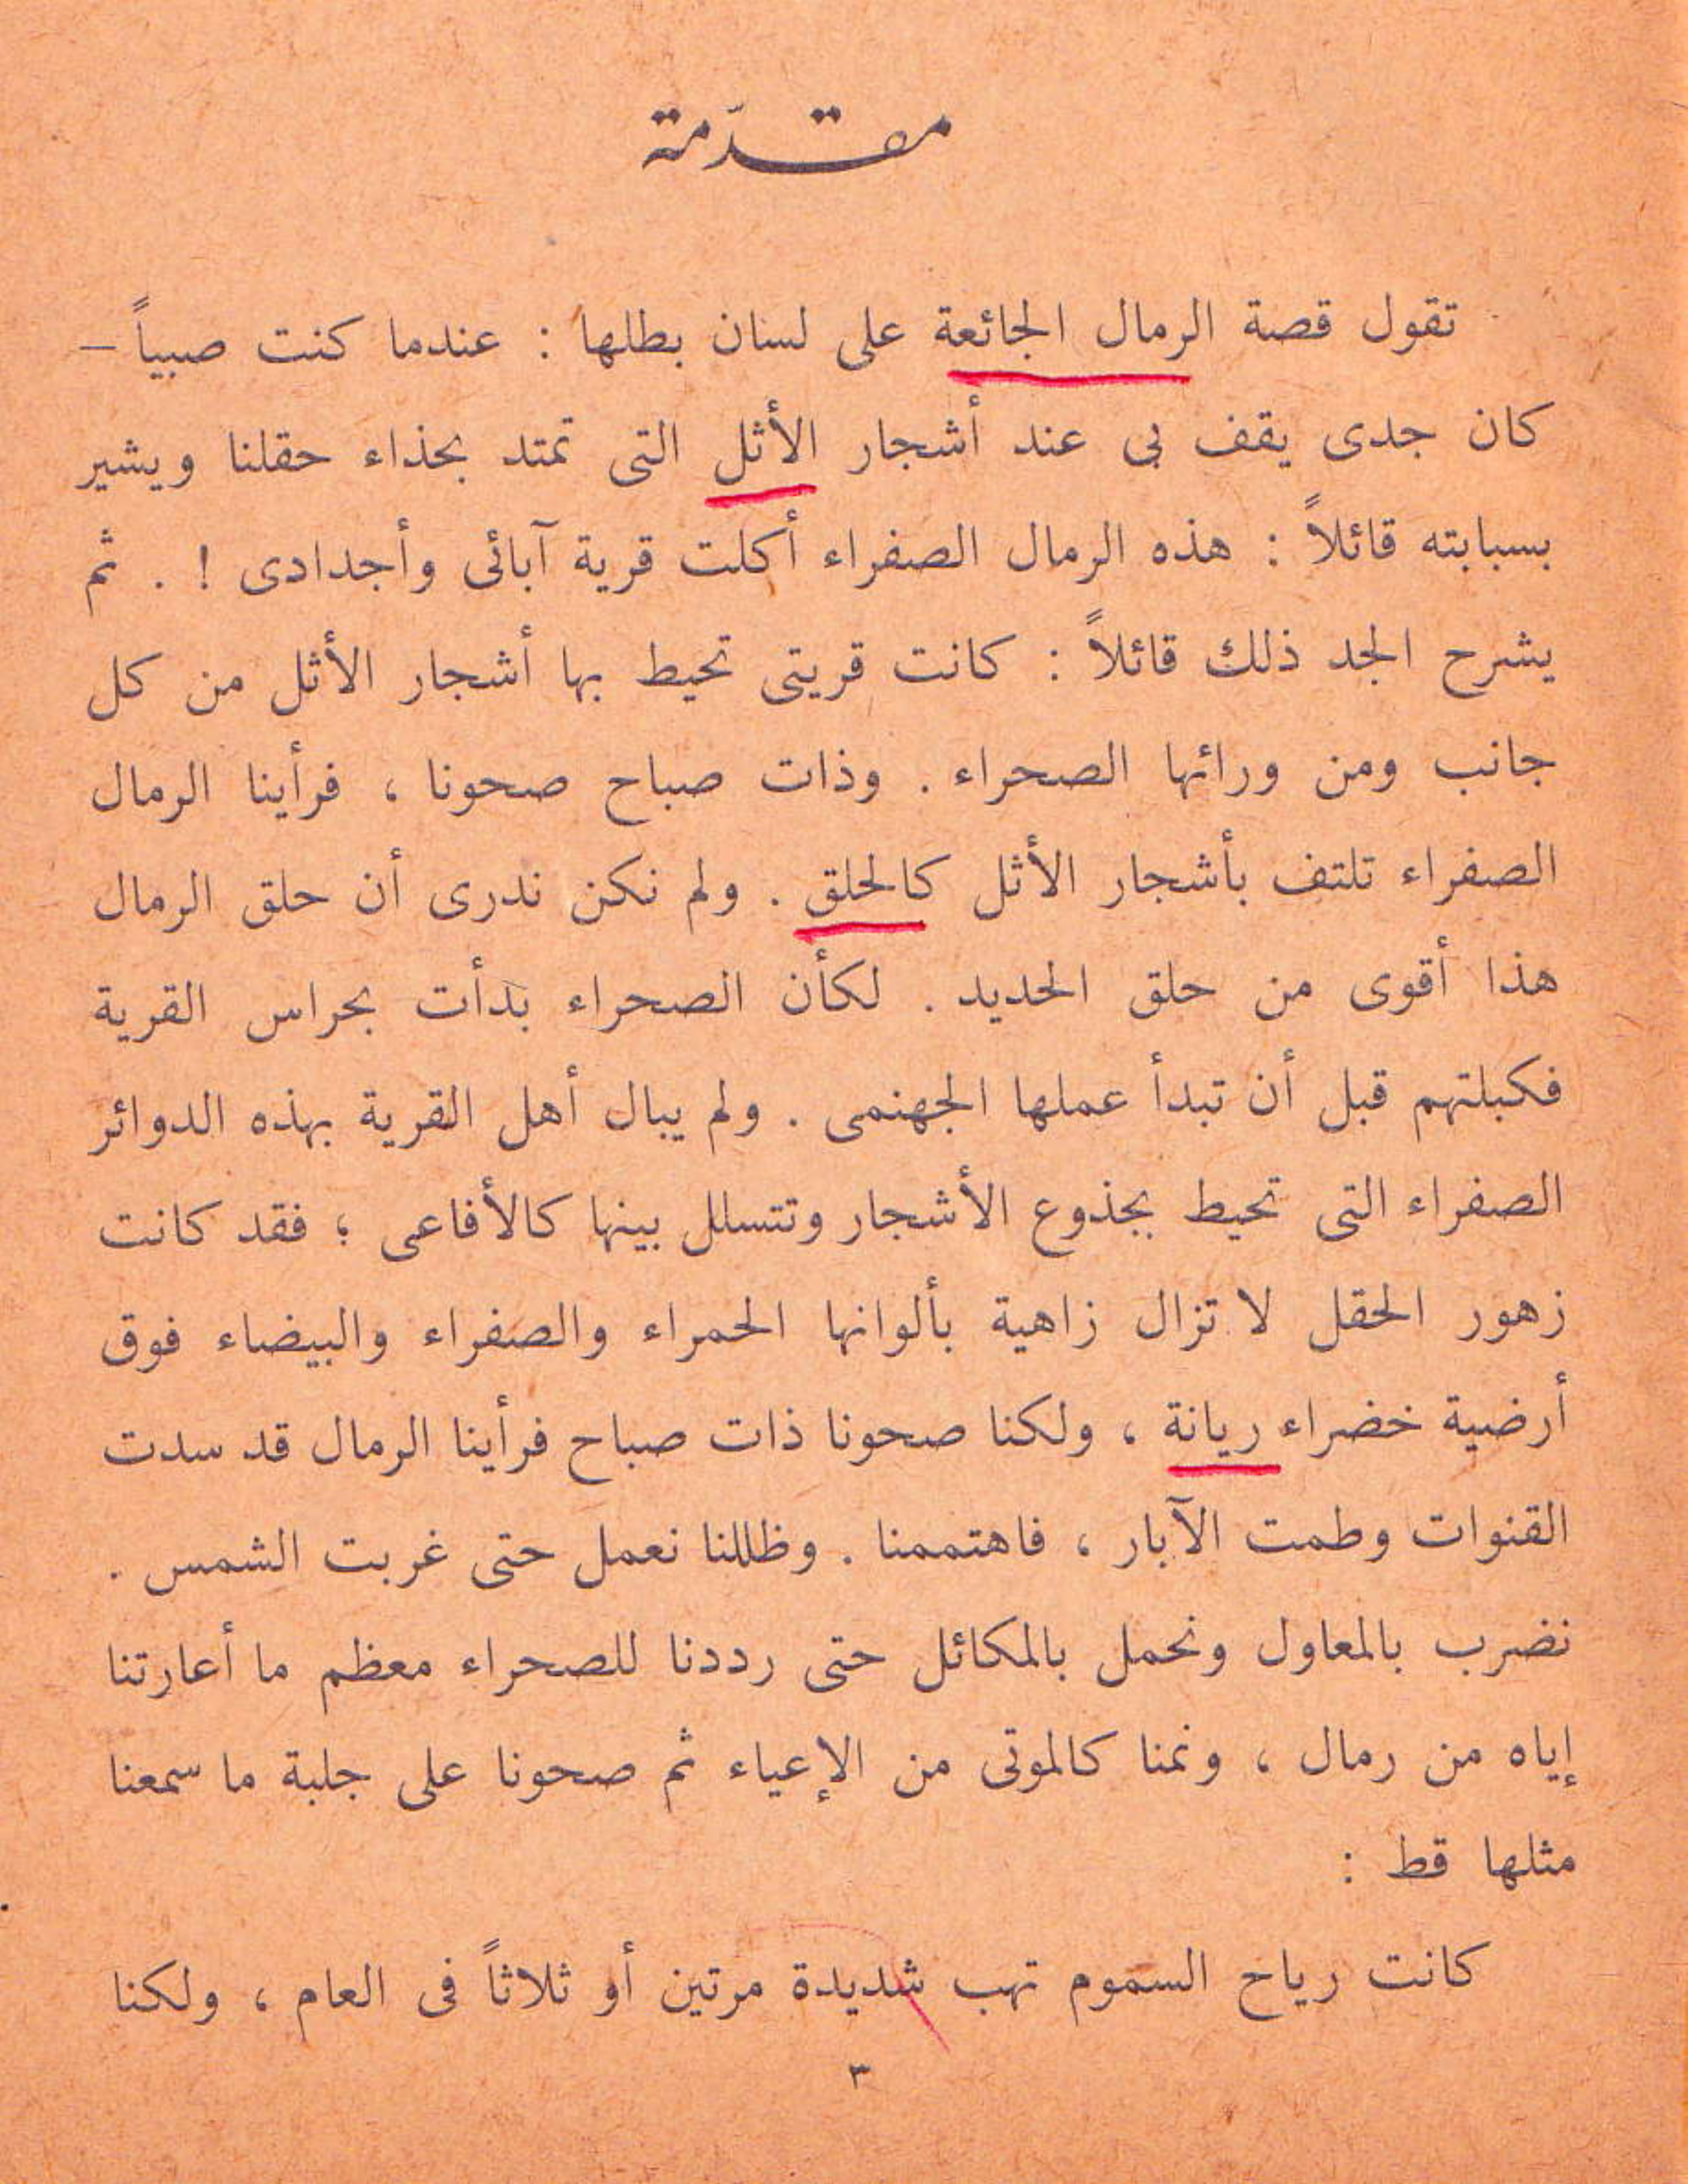 مقدّمة
تقول قصة الرمال الجائعة على لسان بطلها : عندما كنت صبياً –
كان جدى يقف بى عند أشجار الأثل التى تمتد بحذاء حقلنا ويشير
بسبابته قائلاً : هذه الرمال الصفراء أكلت قرية آبائى وأجدادى ! . ثم
يشرح الجد ذلك قائلاً : كانت قريتى تحيط بها أشجار الأثل من كل
جانب ومن ورائها الصحراء . وذات صباح صحونا ، فرأينا الرمال
الصفراء تلتف بأشجار الأثل كالحلق . ولم نكن ندرى أن حلق الرمال
هذا أقوى من حلق الحديد . لكأن الصحراء بدأت بحراس القرية
فكبلتهم قبل أن تبدأ عملها الجهنمى . ولم يبال أهل القرية بهذه الدوائر
الصفراء التى تحيط بجذوع الأشجار وتتسلل بينها كالأفاعى ؛ فقد كانت
زهور الحقل لا تزال زاهية بألوانها الحمراء والصفراء والبيضاء فوق
أرضية خضراء ريانة ، ولكنا صحونا ذات صباح فرأينا الرمال قد سدت
القنوات وطمت الآبار ، فاهتممنا . وظللنا نعمل حتى غربت الشمس .
نضرب بالمعاول ونحمل بالمكائل حتى رددنا للصحراء معظم ما أعارتنا
إياه من رمال ، ونمنا كالموتى من الإعياء ثم صحونا على جلبة ما سمعنا
مثلها قط :
كانت رياح السموم تهب شديدة مرتين أو ثلاثاً فى العام ، ولكنا
٣